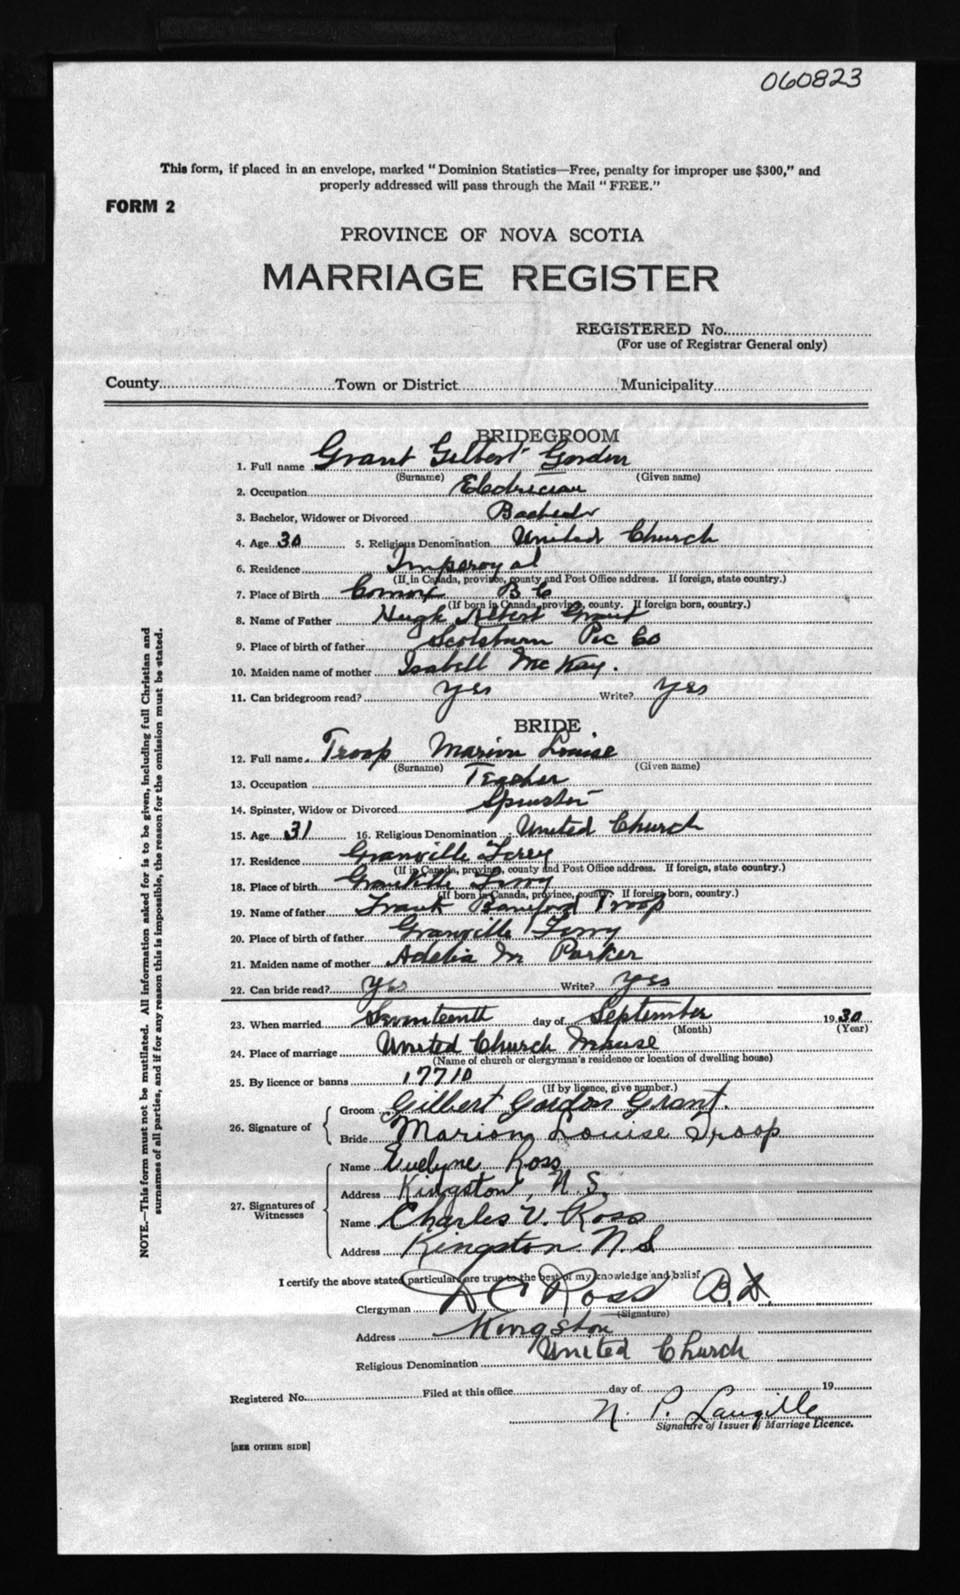 060823
This form, if placed in an envelope, marked "Dominion Statistics—Free, penalty for improper use $300," and
properly addressed will pass through the Mail "FREE."
FORM 2
PROVINCE OF NOVA SCOTIA
MARRIAGE REGISTER
REGISTERED No.
(For use of Registrar General only)
County Town or District Municipality
BRIDEGROOM
1. Full name Grant Gilbert Gordon
(Surname) (Given name)
2. Occupation Electrician
3. Bachelor, Widower or Divorced Bachelor
4. Age 30 5. Religious Denomination United Church
6. Residence Imperoyal
(If in Canada, province, county and Post Office address. If foreign, state country.)
7. Place of Birth Comox B C
(If born in Canada, province, county. If foreign born, country.)
8. Name of Father Hugh Albert Grant
9. Place of birth of father Scotsburn Pic Co
10. Maiden name of mother Isabell McKay.
11. Can bridegroom read? yes Write? yes
BRIDE
12. Full name. Troop Marion Louise
(Surname) (Given name)
13. Occupation Teacher
14. Spinster, Widow or Divorced Spinster
15. Age 31 16. Religious Denomination United Church
17. Residence Granville Ferry
(If in Canada, province, county and Post Office address. If foreign, state country.)
18. Place of birth Granville Ferry
(If born in Canada, province, county. If foreign born, country.)
19. Name of father Frank Troop
20. Place of birth of father Granville Ferry
21. Maiden name of mother Adelia M Parker
22. Can bride read? yes Write? yes
23. When married Seventeenth day of September 1930
(Month) (Year)
24. Place of marriage United Church Manse
(Name of church or clergyman's residence or location of dwelling house)
25. By licence or banns 17710
(If by licence, give number.)
26. Signature of Groom Gilbert Gordon Grant.
Bride Marion Louise Troop
27. Signatures of Witnesses Name Evelyne Ross
Address Kingston, N.S.
Name Charles V. Ross
Address Kingston N.S
I certify the above stated particulars are true to the best of my knowledge and belief.
Clergyman D C Ross B.D.
(Signature)
Address Kingston
Religious Denomination United Church
Registered No. Filed at this office day of 19
N. P. Langille
Signature of Issuer of Marriage Licence.
[SEE OTHER SIDE]
NOTE.—This form must not be mutilated. All information asked for is to be given, including full Christian and
surnames of all parties, and if for any reason this is impossible, the reason for the omission must be stated.